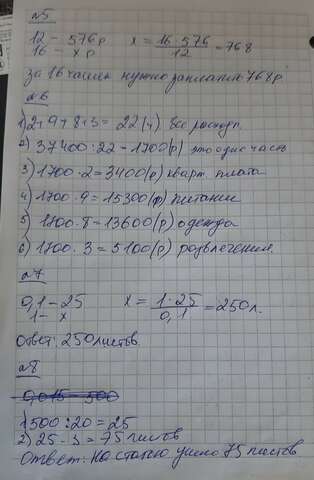 №5
12 – 576р x = 16·576/12 = 768
16 – x р
за 16 чашек нужно заплатить 768р
№6
1) 2+9+8+3 = 22(ч) все расход.
2) 37400:22 - 1700(р) это одна часть
3) 1700·2=3400(р) кварт. плата
4) 1700·9=15300(р) питание
5) 1700·8=13600(р) одежда
6) 1700·3=5100(р) развлечения.
№7
0,1 – 25 x = 1·25/0,1 = 250л.
1 – x
Ответ: 250 листов.
№8
0,015 – 500
1) 500:20=25
2) 25·3=75 листов
Ответ: на статью ушло 75 листов